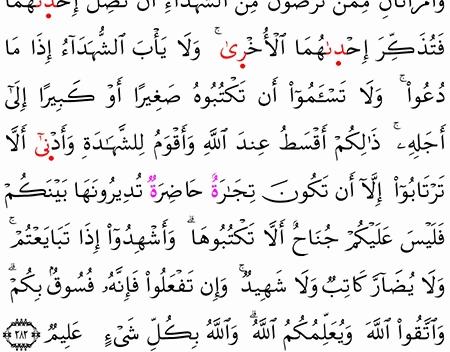 وَٱمْرَأَتَانِ مِمَّن تَرْضَوْنَ مِنَ ٱلشُّهَدَآءِ أَن تَضِلَّ إِحْدَىٰهُمَا
فَتُذَكِّرَ إِحْدَىٰهُمَا ٱلْأُخْرَىٰ ۚ وَلَا يَأْبَ ٱلشُّهَدَآءُ إِذَا مَا
دُعُوا۟ ۚ وَلَا تَسْـَٔمُوٓا۟ أَن تَكْتُبُوهُ صَغِيرًا أَوْ كَبِيرًا إِلَىٰٓ
أَجَلِهِۦ ۚ ذَٰلِكُمْ أَقْسَطُ عِندَ ٱللَّهِ وَأَقْوَمُ لِلشَّهَٰدَةِ وَأَدْنَىٰٓ أَلَّا
تَرْتَابُوٓا۟ ۖ إِلَّآ أَن تَكُونَ تِجَٰرَةٌ حَاضِرَةٌ تُدِيرُونَهَا بَيْنَكُمْ
فَلَيْسَ عَلَيْكُمْ جُنَاحٌ أَلَّا تَكْتُبُوهَا ۗ وَأَشْهِدُوٓا۟ إِذَا تَبَايَعْتُمْ ۚ
وَلَا يُضَآرَّ كَاتِبٌ وَلَا شَهِيدٌ ۚ وَإِن تَفْعَلُوا۟ فَإِنَّهُۥ فُسُوقٌۢ بِكُمْ ۗ
وَٱتَّقُوا۟ ٱللَّهَ ۖ وَيُعَلِّمُكُمُ ٱللَّهُ ۗ وَٱللَّهُ بِكُلِّ شَىْءٍ عَلِيمٌ ٢٨٢